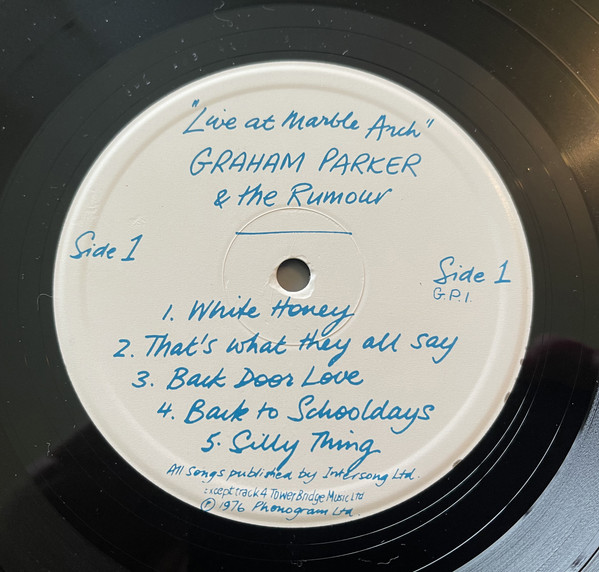 "Live at Marble Arch"
GRAHAM PARKER
& the Rumour
Side 1
Side 1
G.P.1.
1. White Honey
2. That's what they all say
3. Back Door Love
4. Back to Schooldays
5. Silly Thing
All songs published by Intersong Ltd.
Except track 4 Tower Bridge Music Ltd
Ⓟ 1976 Phonogram Ltd.